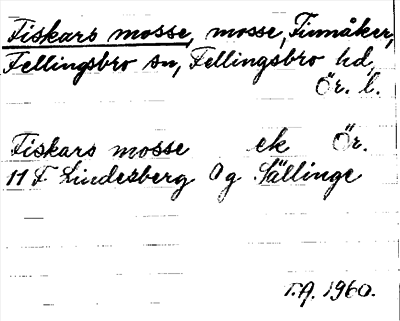 Fiskars mosse, mosse, Finnåker,
Fellingsbro sn, Fellingsbro hd,
Ör. l.
Fiskars mosse ek Ör.
11 F Lindesberg Og Sällinge
T.A. 1960.